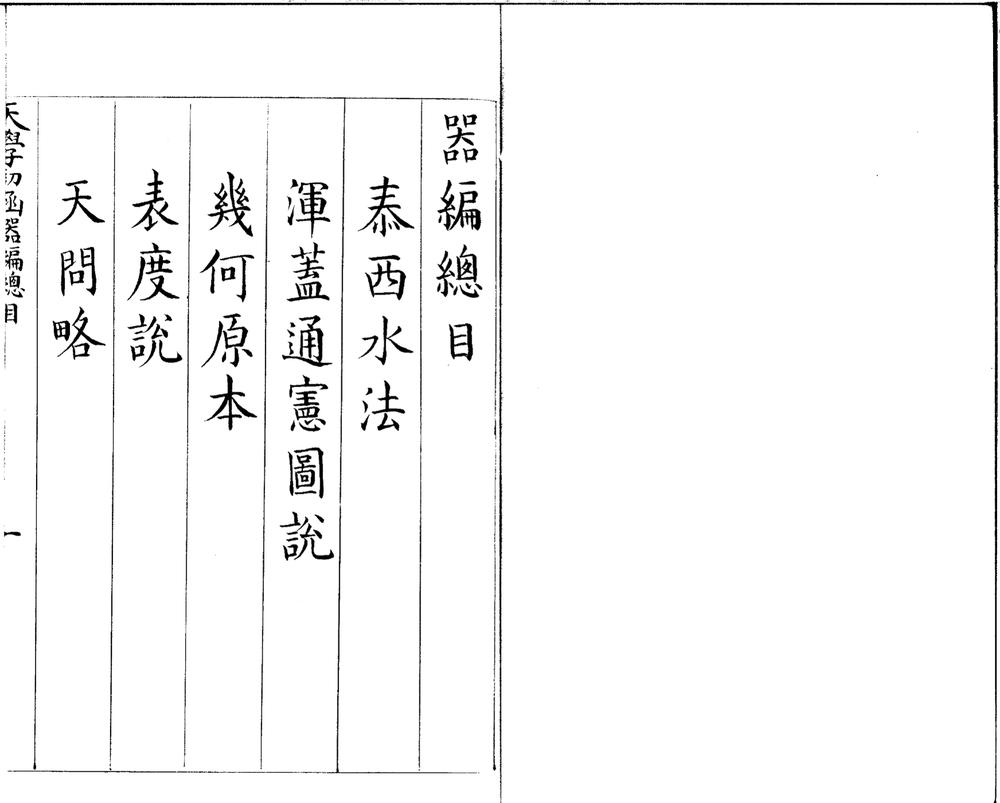 器編總目
泰西水法
渾蓋通憲圖說
幾何原本
表度說
天問略
天學初函器編總目
一